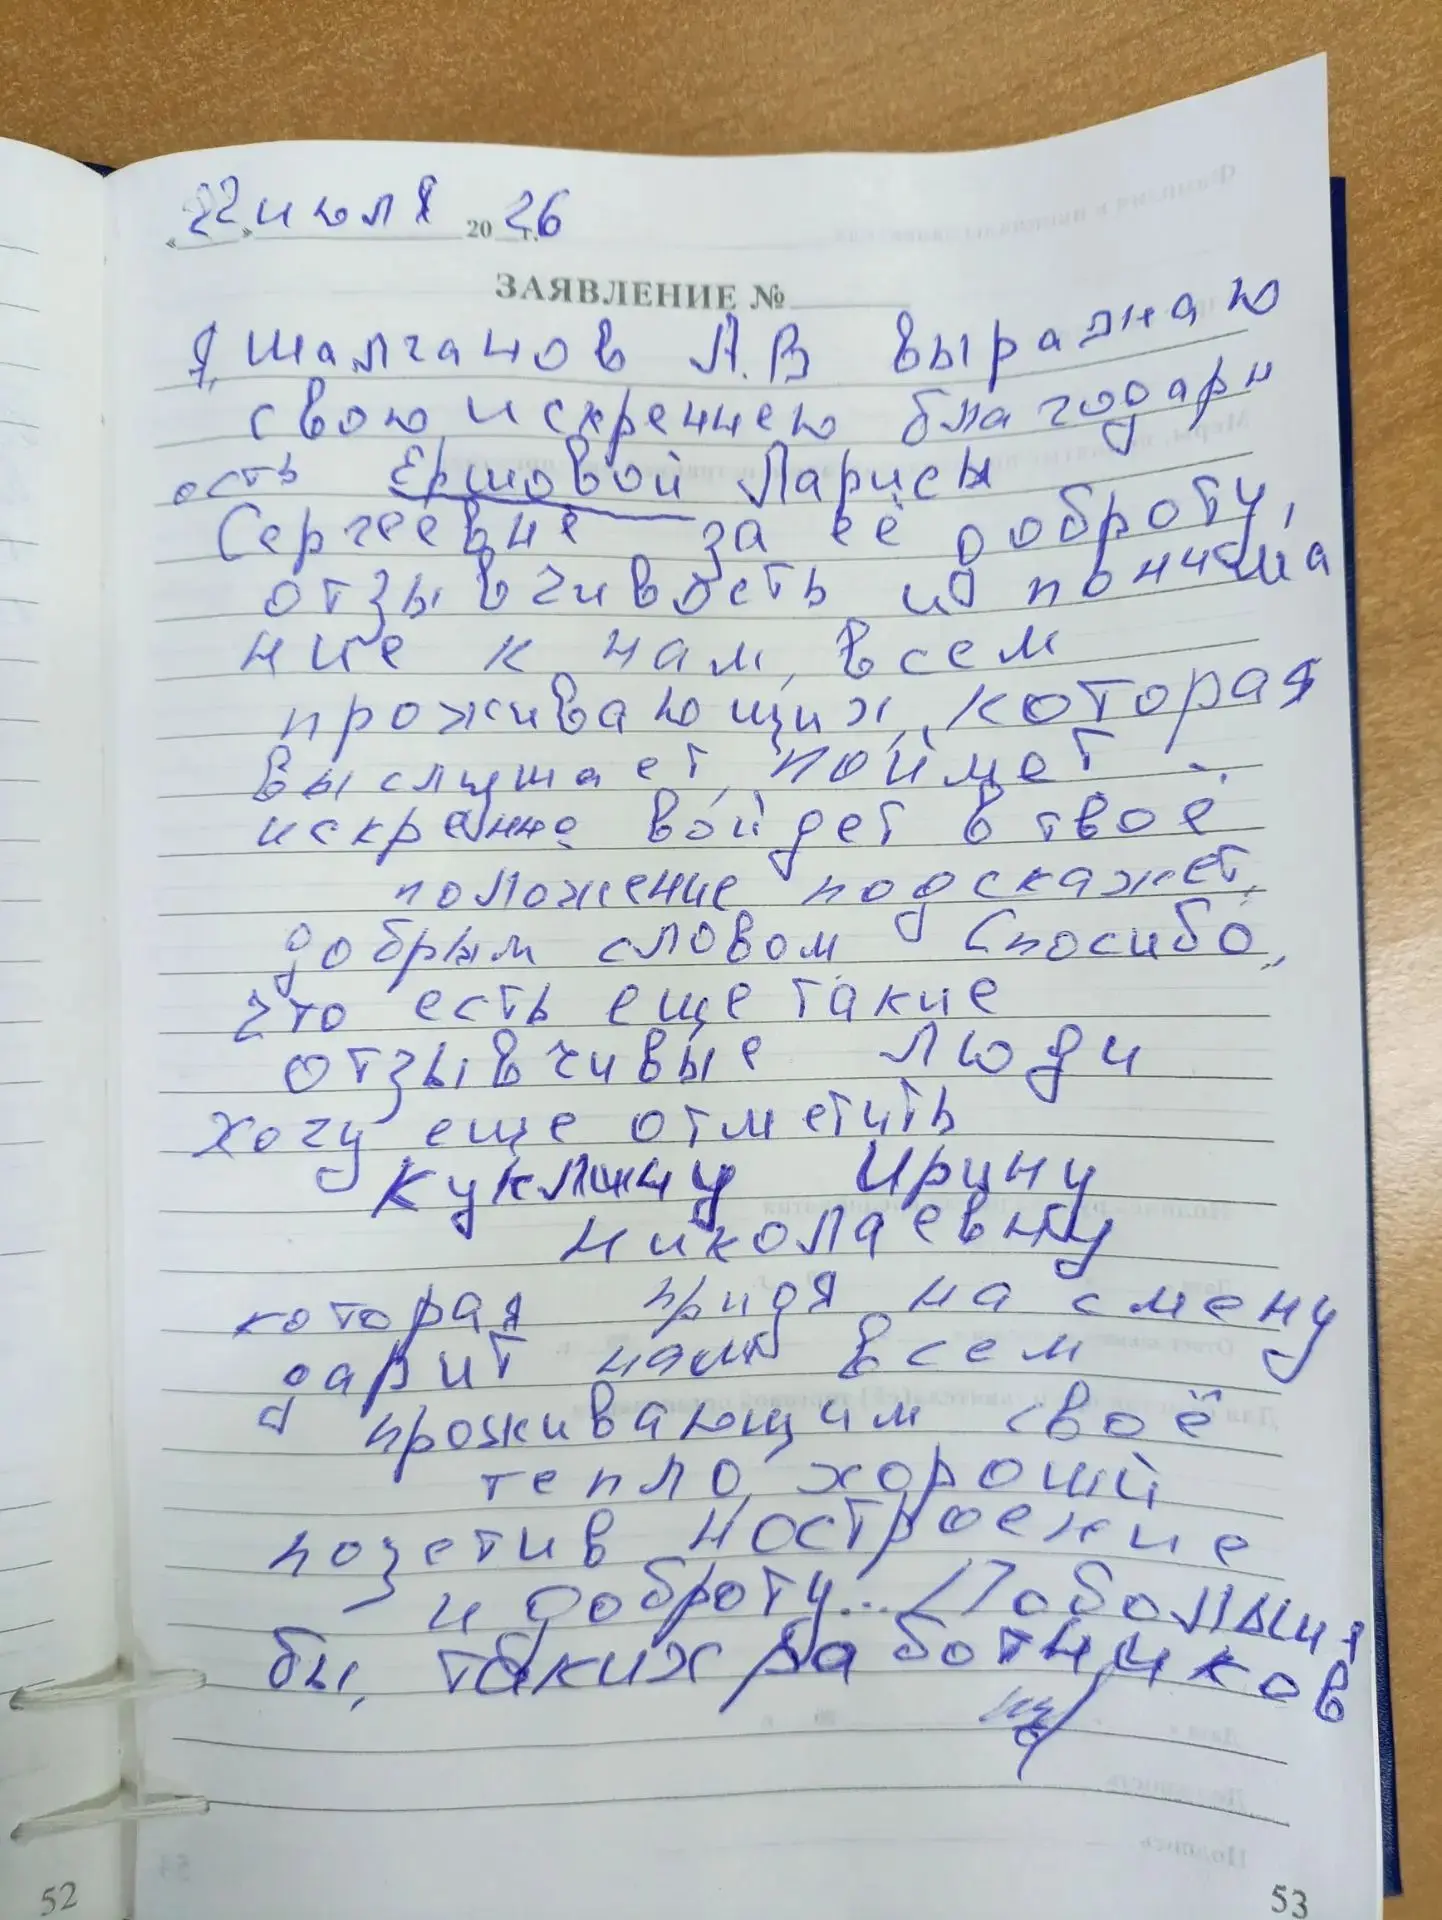 «22» июля 2026 г.
ЗАЯВЛЕНИЕ №
Я, Шалганов А.В выражаю
свою искреннею благодарн
ость Ершовой Ларисы
Сергеевне за её доброту,
отзывчивость и понима
ние к нам, всем
проживающих, которая
выслушает, поймет
искренне войдет в твоё
положение подскажет,
добрым словом Спосибо,
что есть еще такие
отзывчивые люди
Хочу еще отметить
Куклину Ирину
Николаевну
которая придя на смену
дарит нам всем
проживающим своё
тепло, хороший
позетив ностроение
и доброту... Побольшия
бы, таких работников
52
53